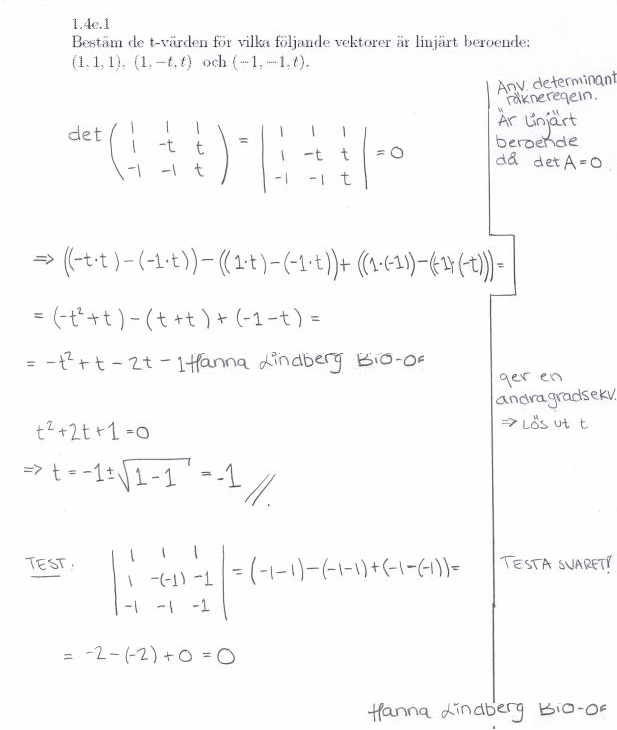 1.4e.1
Bestäm de t-värden för vilka följande vektorer är linjärt beroende:
(1, 1, 1), (1, −t, t) och (−1, −1, t).
Anv. determinant
räkneregeln.
Är linjärt
beroende
då det A = 0
det ( 1 1 1 ; 1 -t t ; -1 -1 t ) = | 1 1 1 ; 1 -t t ; -1 -1 t | = 0
⇒ ((-t·t)-(-1·t))-((1·t)-(-1·t))+((1·(-1))-(-1)·(-t))) =
= (-t²+t)-(t+t)+(-1-t) =
= -t²+t-2t-1 Hanna Lindberg BIO-OF
ger en
andragradsekv.
⇒ Lös ut t
t²+2t+1=0
⇒ t = -1±√1-1 = -1 //
TEST: | 1 1 1 ; 1 -(-1) -1 ; -1 -1 -1 | = (-1-1)-(-1-1)+(-1-(-1))=
TESTA SVARET!
= -2-(-2)+0 = 0
Hanna Lindberg BIO-OF